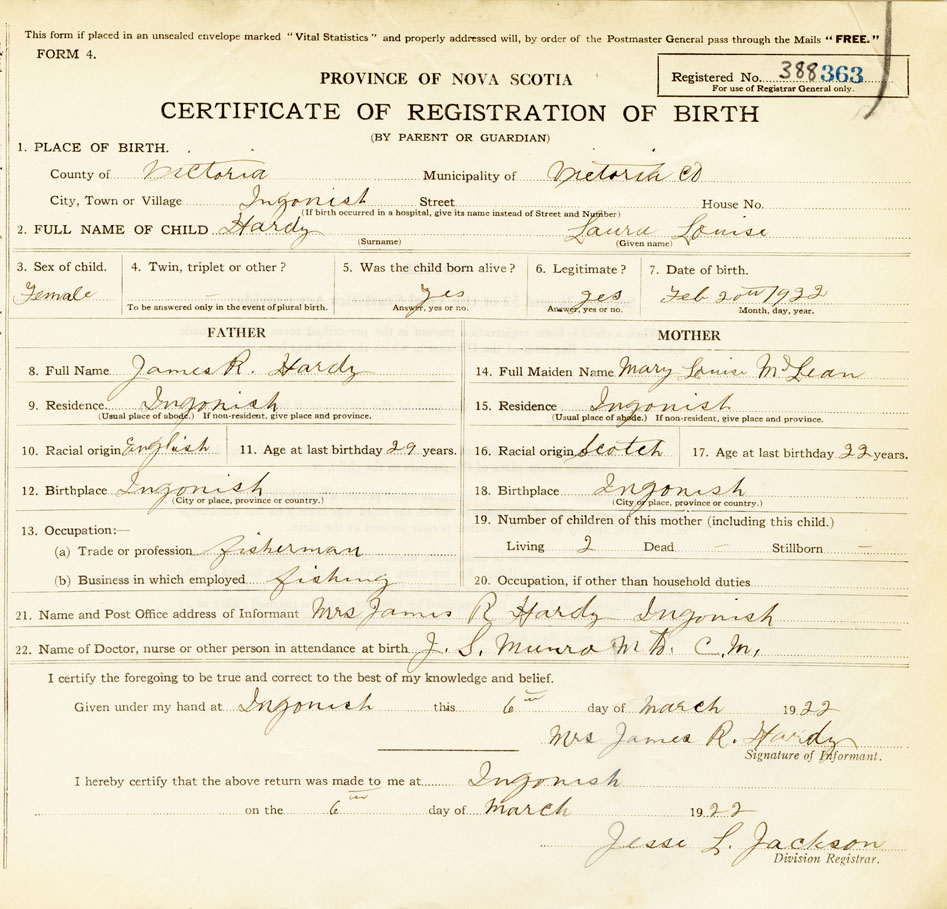 This form if placed in an unsealed envelope marked "Vital Statistics" and properly addressed will, by order of the Postmaster General pass through the Mails "FREE."
FORM 4.
PROVINCE OF NOVA SCOTIA
Registered No. 388363
For use of Registrar General only.
CERTIFICATE OF REGISTRATION OF BIRTH
(BY PARENT OR GUARDIAN)
1. PLACE OF BIRTH.
County of Victoria Municipality of Victoria Co
City, Town or Village Ingonish Street House No.
(If birth occurred in a hospital, give its name instead of Street and Number)
2. FULL NAME OF CHILD Hardy Laura Louise
(Surname) (Given name)
3. Sex of child. 4. Twin, triplet or other? 5. Was the child born alive? 6. Legitimate? 7. Date of birth.
Female yes yes Feb 20th 1922
To be answered only in the event of plural birth. Answer, yes or no. Answer, yes or no. Month, day, year.
FATHER MOTHER
8. Full Name James R. Hardy 14. Full Maiden Name Mary Louise McLean
9. Residence Ingonish 15. Residence Ingonish
(Usual place of abode.) If non-resident, give place and province. (Usual place of abode.) If non-resident, give place and province.
10. Racial origin English 11. Age at last birthday 29 years. 16. Racial origin Scotch 17. Age at last birthday 22 years.
12. Birthplace Ingonish 18. Birthplace Ingonish
(City or place, province or country.) (City or place, province or country.)
13. Occupation:— 19. Number of children of this mother (including this child.)
(a) Trade or profession fisherman Living 2 Dead — Stillborn —
(b) Business in which employed fishing 20. Occupation, if other than household duties
21. Name and Post Office address of Informant Mrs James R Hardy Ingonish
22. Name of Doctor, nurse or other person in attendance at birth J. S. Munro M.D. C.M.
I certify the foregoing to be true and correct to the best of my knowledge and belief.
Given under my hand at Ingonish this 6th day of March 1922
Mrs James R. Hardy
Signature of Informant.
I hereby certify that the above return was made to me at Ingonish
on the 6th day of March 1922
Jesse L. Jackson
Division Registrar.